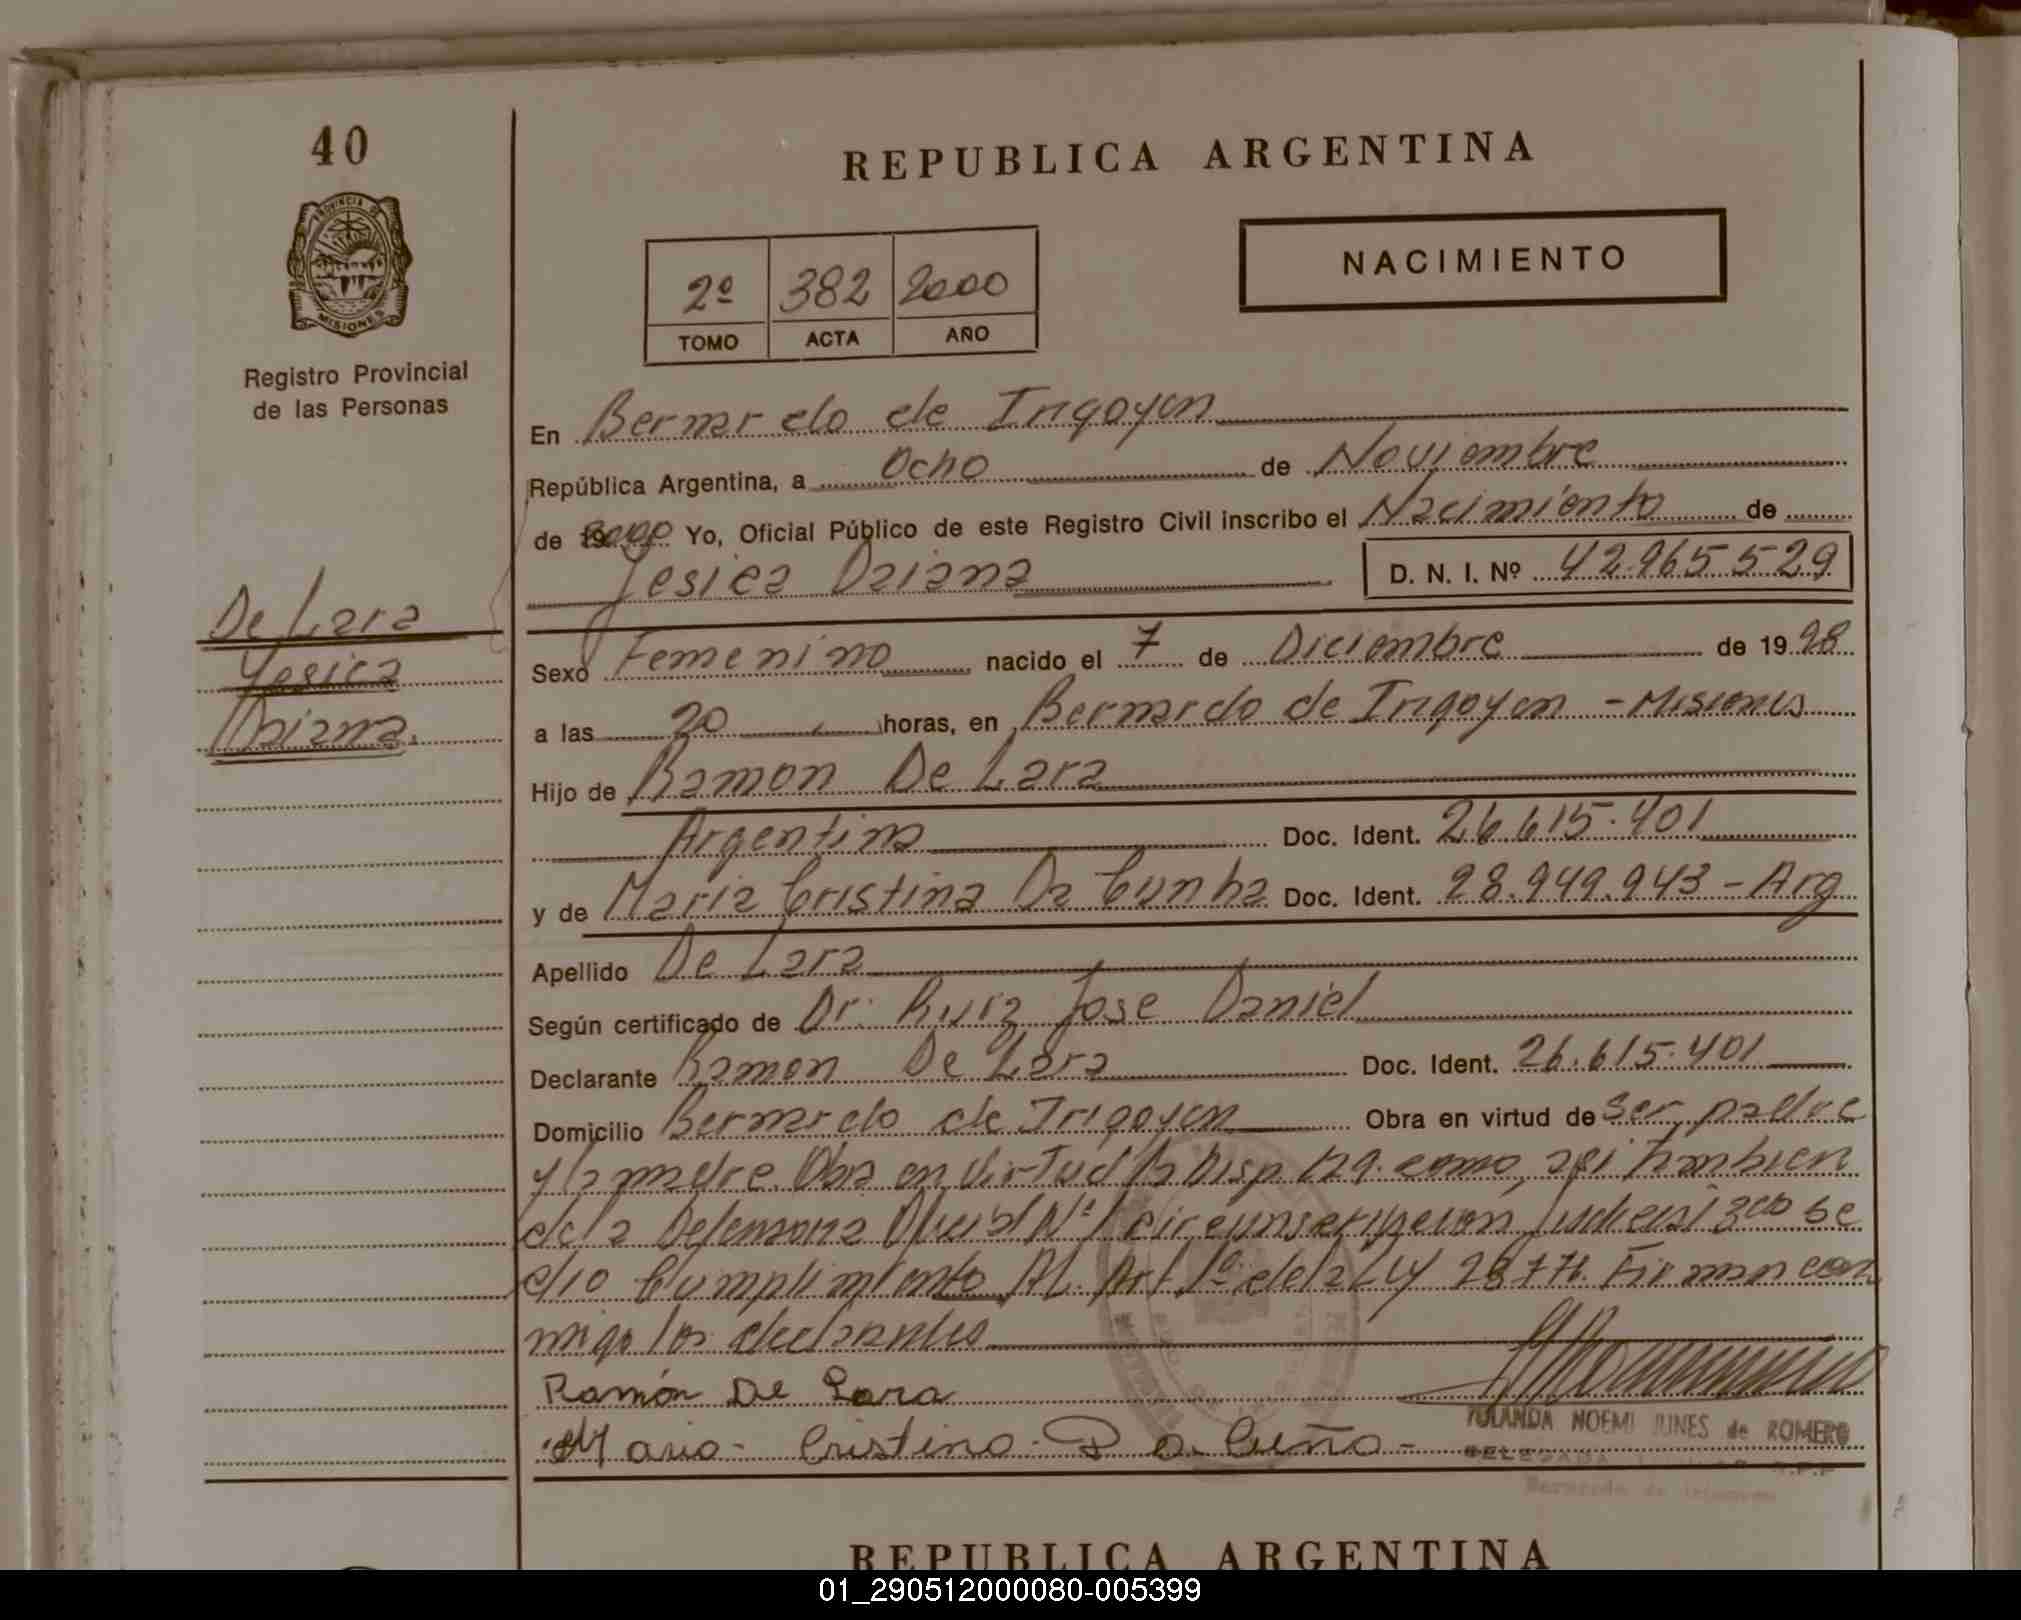 40
REPUBLICA ARGENTINA
PROVINCIA DE
MISIONES
Registro Provincial
de las Personas
2º 382 2000
TOMO ACTA AÑO
NACIMIENTO
En Bernardo de Irigoyen
República Argentina, a Ocho de Noviembre
de 2000 Yo, Oficial Público de este Registro Civil inscribo el Nacimiento de
Yesica Daiana D. N. I. Nº 42.965.529
De Lara
Yesica
Daiana.
Sexo Femenino nacido el 7 de Diciembre de 1998
a las 20 horas, en Bernardo de Irigoyen - Misiones
Hijo de Ramon De Lara
Argentino Doc. Ident. 26.615.401
y de Maria Cristina Da Cunha Doc. Ident. 28.949.943 - Arg
Apellido De Lara
Según certificado de Dr. Ruiz Jose Daniel
Declarante Ramon De Lara Doc. Ident. 26.615.401
Domicilio Bernardo de Irigoyen Obra en virtud de ser padre
y la madre. Obra en virtud la Disp. como asi tambien
de la Defensoria Oficial Nº 1 circunscripcion Judicial 3era se
dio Cumplimiento Al. Art 1º de la Ley Firman con
migo los declarantes
Ramón De Lara
Maria - Cristina - Da Cuña -
YOLANDA NOEMI JUNES de ROMERO
DELEGADA R.P.P
Bernardo de Irigoyen
REPUBLICA ARGENTINA
01_290512000080-005399